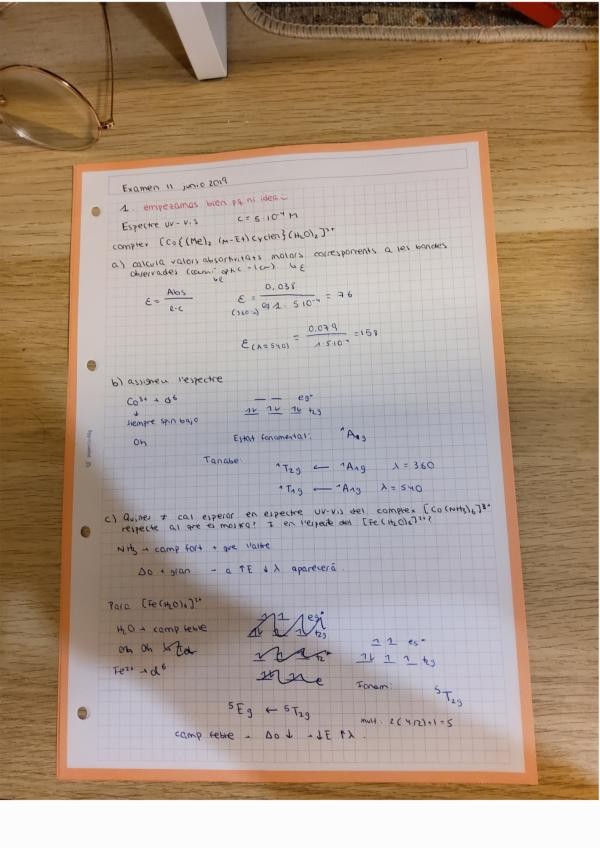 Examen 11 junio 2019
1. empezamos bien pq ni idea
Espectre UV-vis C = 5·10⁻⁴ M
complex [Co{(Me)₂ (μ-Et) cyclen}(H₂O)₂]³⁺
a) calcula valors absortivitats molars corresponents a les bandes
observades (camí òptic = 1cm) ↳ε
ε = Abs / l·c
ε (360) = 0,038 / 1·5·10⁻⁴ = 76
ε (λ=540) = 0,079 / 1·5·10⁻⁴ = 158
b) assigneu l'espectre
Co³⁺ → d⁶
↓
siempre spin bajo
Oh
eg*
t2g
Estat fonamental: ¹A₁g
Tanabe:
¹T₂g ← ¹A₁g λ = 360
¹T₁g ← ¹A₁g λ = 540
c) Quines ≠ cal esperar en espectre UV-vis del complex [Co(NH₃)₆]³⁺
respecte al que es mostra? I en l'espectre del [Fe(H₂O)₆]²⁺?
NH₃ → camp fort + que l'altre
Δo + gran → a ↑E ↓λ apareixerà.
Para [Fe(H₂O)₆]²⁺
H₂O → camp feble
Oh
Fe²⁺ → d⁶
eg*
t2g
Fonam: ⁵T₂g
⁵Eg ← ⁵T₂g
mult: 2(4/2)+1 = 5
camp feble → Δo ↓ → ↓E ↑λ.